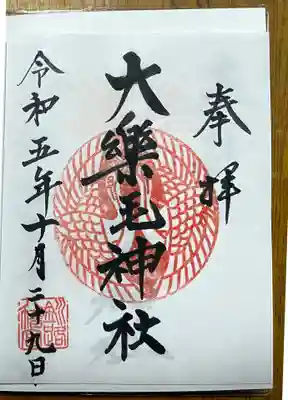 奉拝
大樂毛神社
令和五年十月二十九日